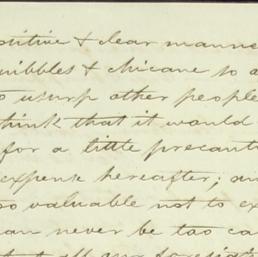 ositive & clear manne
uibbles & chicane to a
o usurp other people
hink that it would
for a little precaut
expense hereafter; an
oo valuable not to ex
an never be too ca